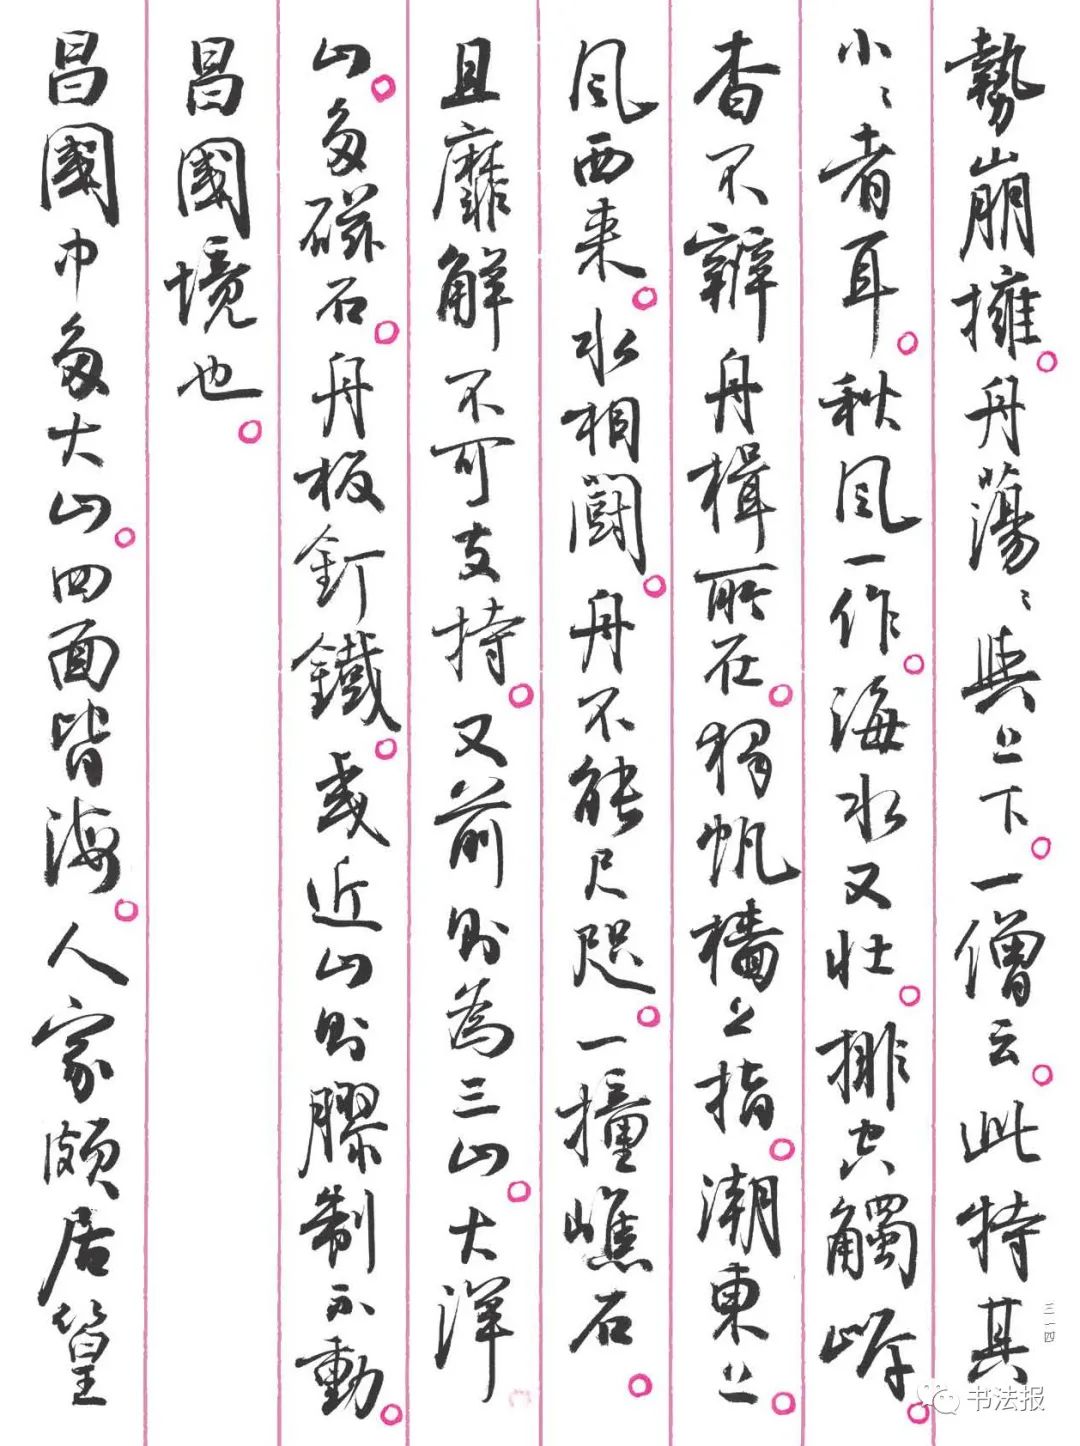 勢崩擁。舟蕩〻與上下。一僧云。此特其
小〻者耳。秋風一作。海水又壯。排空觸岸。
杳不辨舟楫所在。獨帆檣上指。潮東上。
風西來。水相鬪。舟不能尺咫。一撞嶕石。
且靡解不可支持。又前則為三山。大洋
山。多磁石。舟板釘鐵。或近山則膠制不動。
昌國境也。
昌國中多大山。四面皆海。人家頗居篁
三一四
书法报